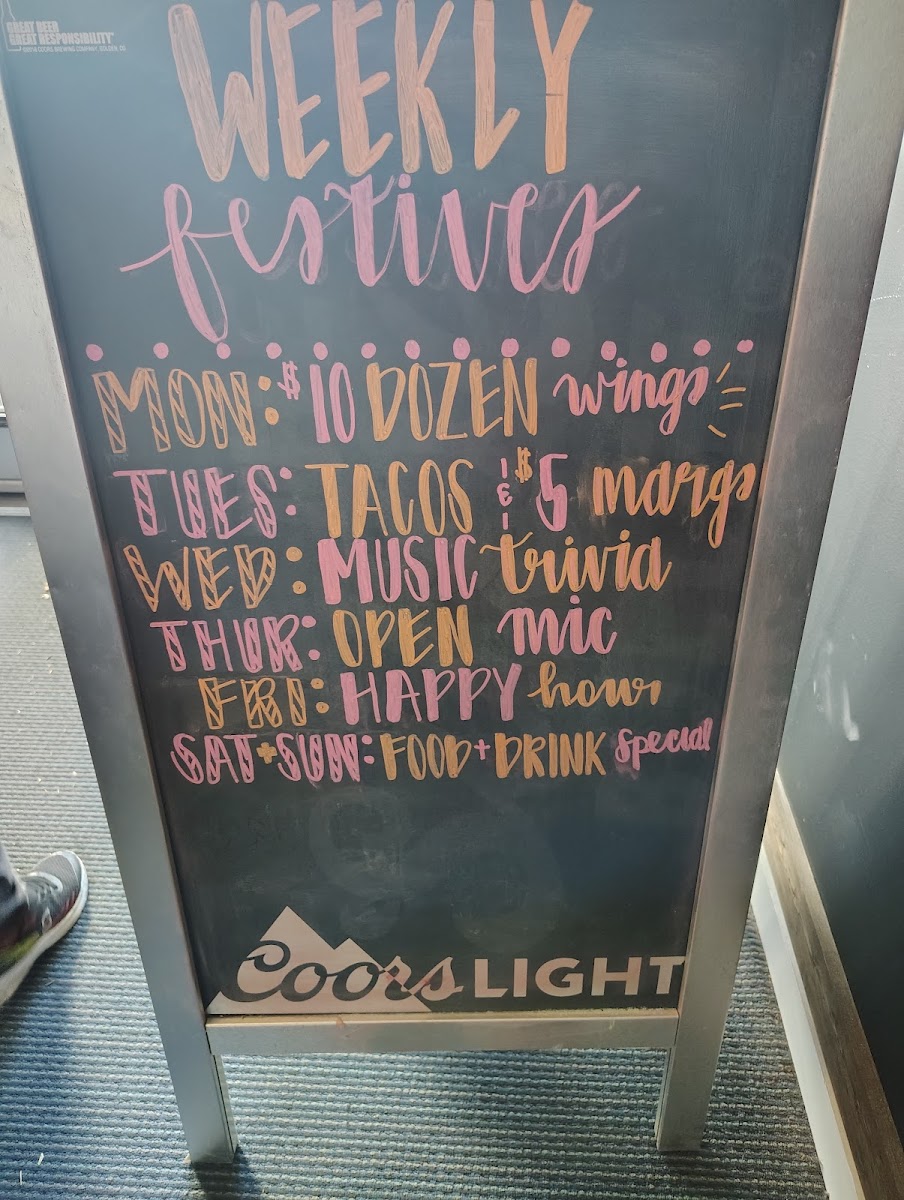 GREAT BEER
GREAT RESPONSIBILITY®
©2018 COORS BREWING COMPANY, GOLDEN, CO
WEEKLY
festives
MON: $10 DOZEN wings
TUES: TACOS & $5 margs
WED: MUSIC trivia
THUR: OPEN mic
FRI: HAPPY hour
SAT + SUN: FOOD + DRINK special
Coors LIGHT